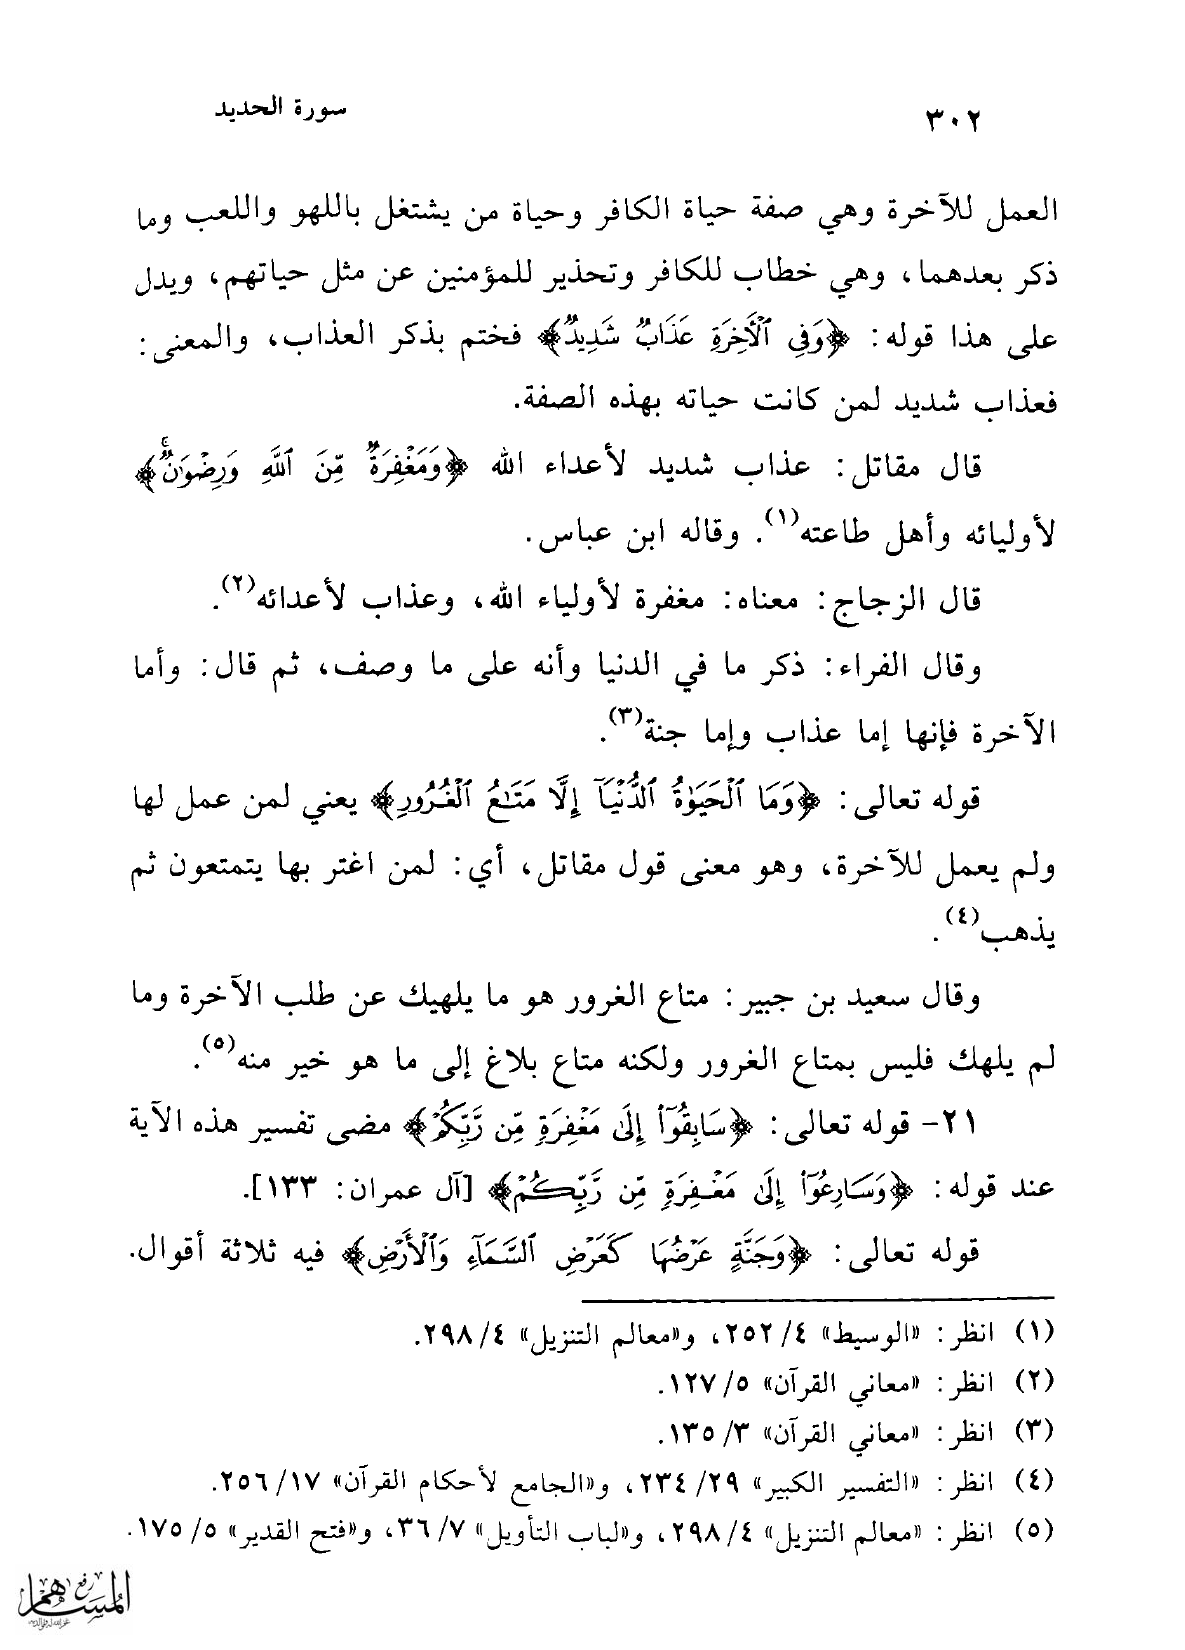 سورة الحديد
٣٠٢
العمل للآخرة وهي صفة حياة الكافر وحياة من يشتغل باللهو واللعب وما
ذكر بعدهما، وهي خطاب للكافر وتحذير للمؤمنين عن مثل حياتهم، ويدل
على هذا قوله: ﴿وَفِي ٱلْأَخِرَةِ عَذَابٌ شَدِيدٌ﴾ فختم بذكر العذاب، والمعنى:
فعذاب شديد لمن كانت حياته بهذه الصفة.
قال مقاتل: عذاب شديد لأعداء الله ﴿وَمَغْفِرَةٌ مِّنَ ٱللَّهِ وَرِضْوَٰنٌۚ﴾
لأوليائه وأهل طاعته(١). وقاله ابن عباس.
قال الزجاج: معناه: مغفرة لأولياء الله، وعذاب لأعدائه(٢).
وقال الفراء: ذكر ما في الدنيا وأنه على ما وصف، ثم قال: وأما
الآخرة فإنها إما عذاب وإما جنة(٣).
قوله تعالى: ﴿وَمَا ٱلْحَيَوٰةُ ٱلدُّنْيَآ إِلَّا مَتَٰعُ ٱلْغُرُورِ﴾ يعني لمن عمل لها
ولم يعمل للآخرة، وهو معنى قول مقاتل، أي: لمن اغتر بها يتمتعون ثم
يذهب(٤).
وقال سعيد بن جبير: متاع الغرور هو ما يلهيك عن طلب الآخرة وما
لم يلهك فليس بمتاع الغرور ولكنه متاع بلاغ إلى ما هو خير منه(٥).
٢١- قوله تعالى: ﴿سَابِقُوٓا۟ إِلَىٰ مَغْفِرَةٍ مِّن رَّبِّكُمْ﴾ مضى تفسير هذه الآية
عند قوله: ﴿وَسَارِعُوٓا۟ إِلَىٰ مَغْفِرَةٍ مِّن رَّبِّكُمْ﴾ [آل عمران: ١٣٣].
قوله تعالى: ﴿وَجَنَّةٍ عَرْضُهَا كَعَرْضِ ٱلسَّمَآءِ وَٱلْأَرْضِ﴾ فيه ثلاثة أقوال.
(١) انظر: «الوسيط» ٤/ ٢٥٢، و«معالم التنزيل» ٤/ ٢٩٨.
(٢) انظر: «معاني القرآن» ٥/ ١٢٧.
(٣) انظر: «معاني القرآن» ٣/ ١٣٥.
(٤) انظر: «التفسير الكبير» ٢٩/ ٢٣٤، و«الجامع لأحكام القرآن» ١٧/ ٢٥٦.
(٥) انظر: «معالم التنزيل» ٤/ ٢٩٨، و«لباب التأويل» ٧/ ٣٦، و«فتح القدير» ٥/ ١٧٥.